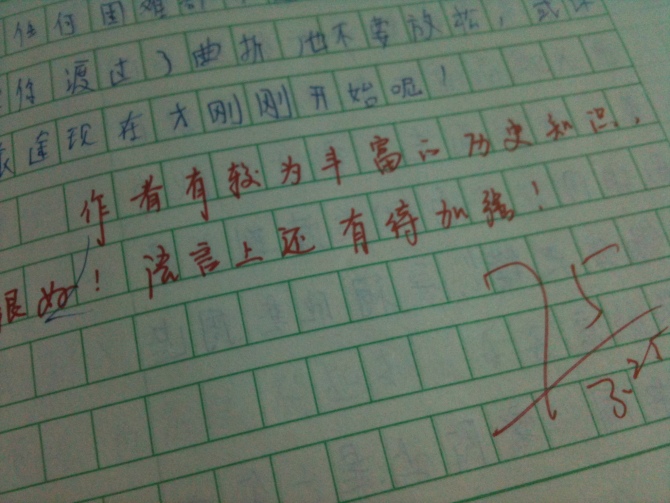 任何困难
你渡过了曲折，也不要放松，或许
旅途现在才刚刚开始呢！
作者有较为丰富的历史知识，
很好！语言上还有待加强！
75
3-25